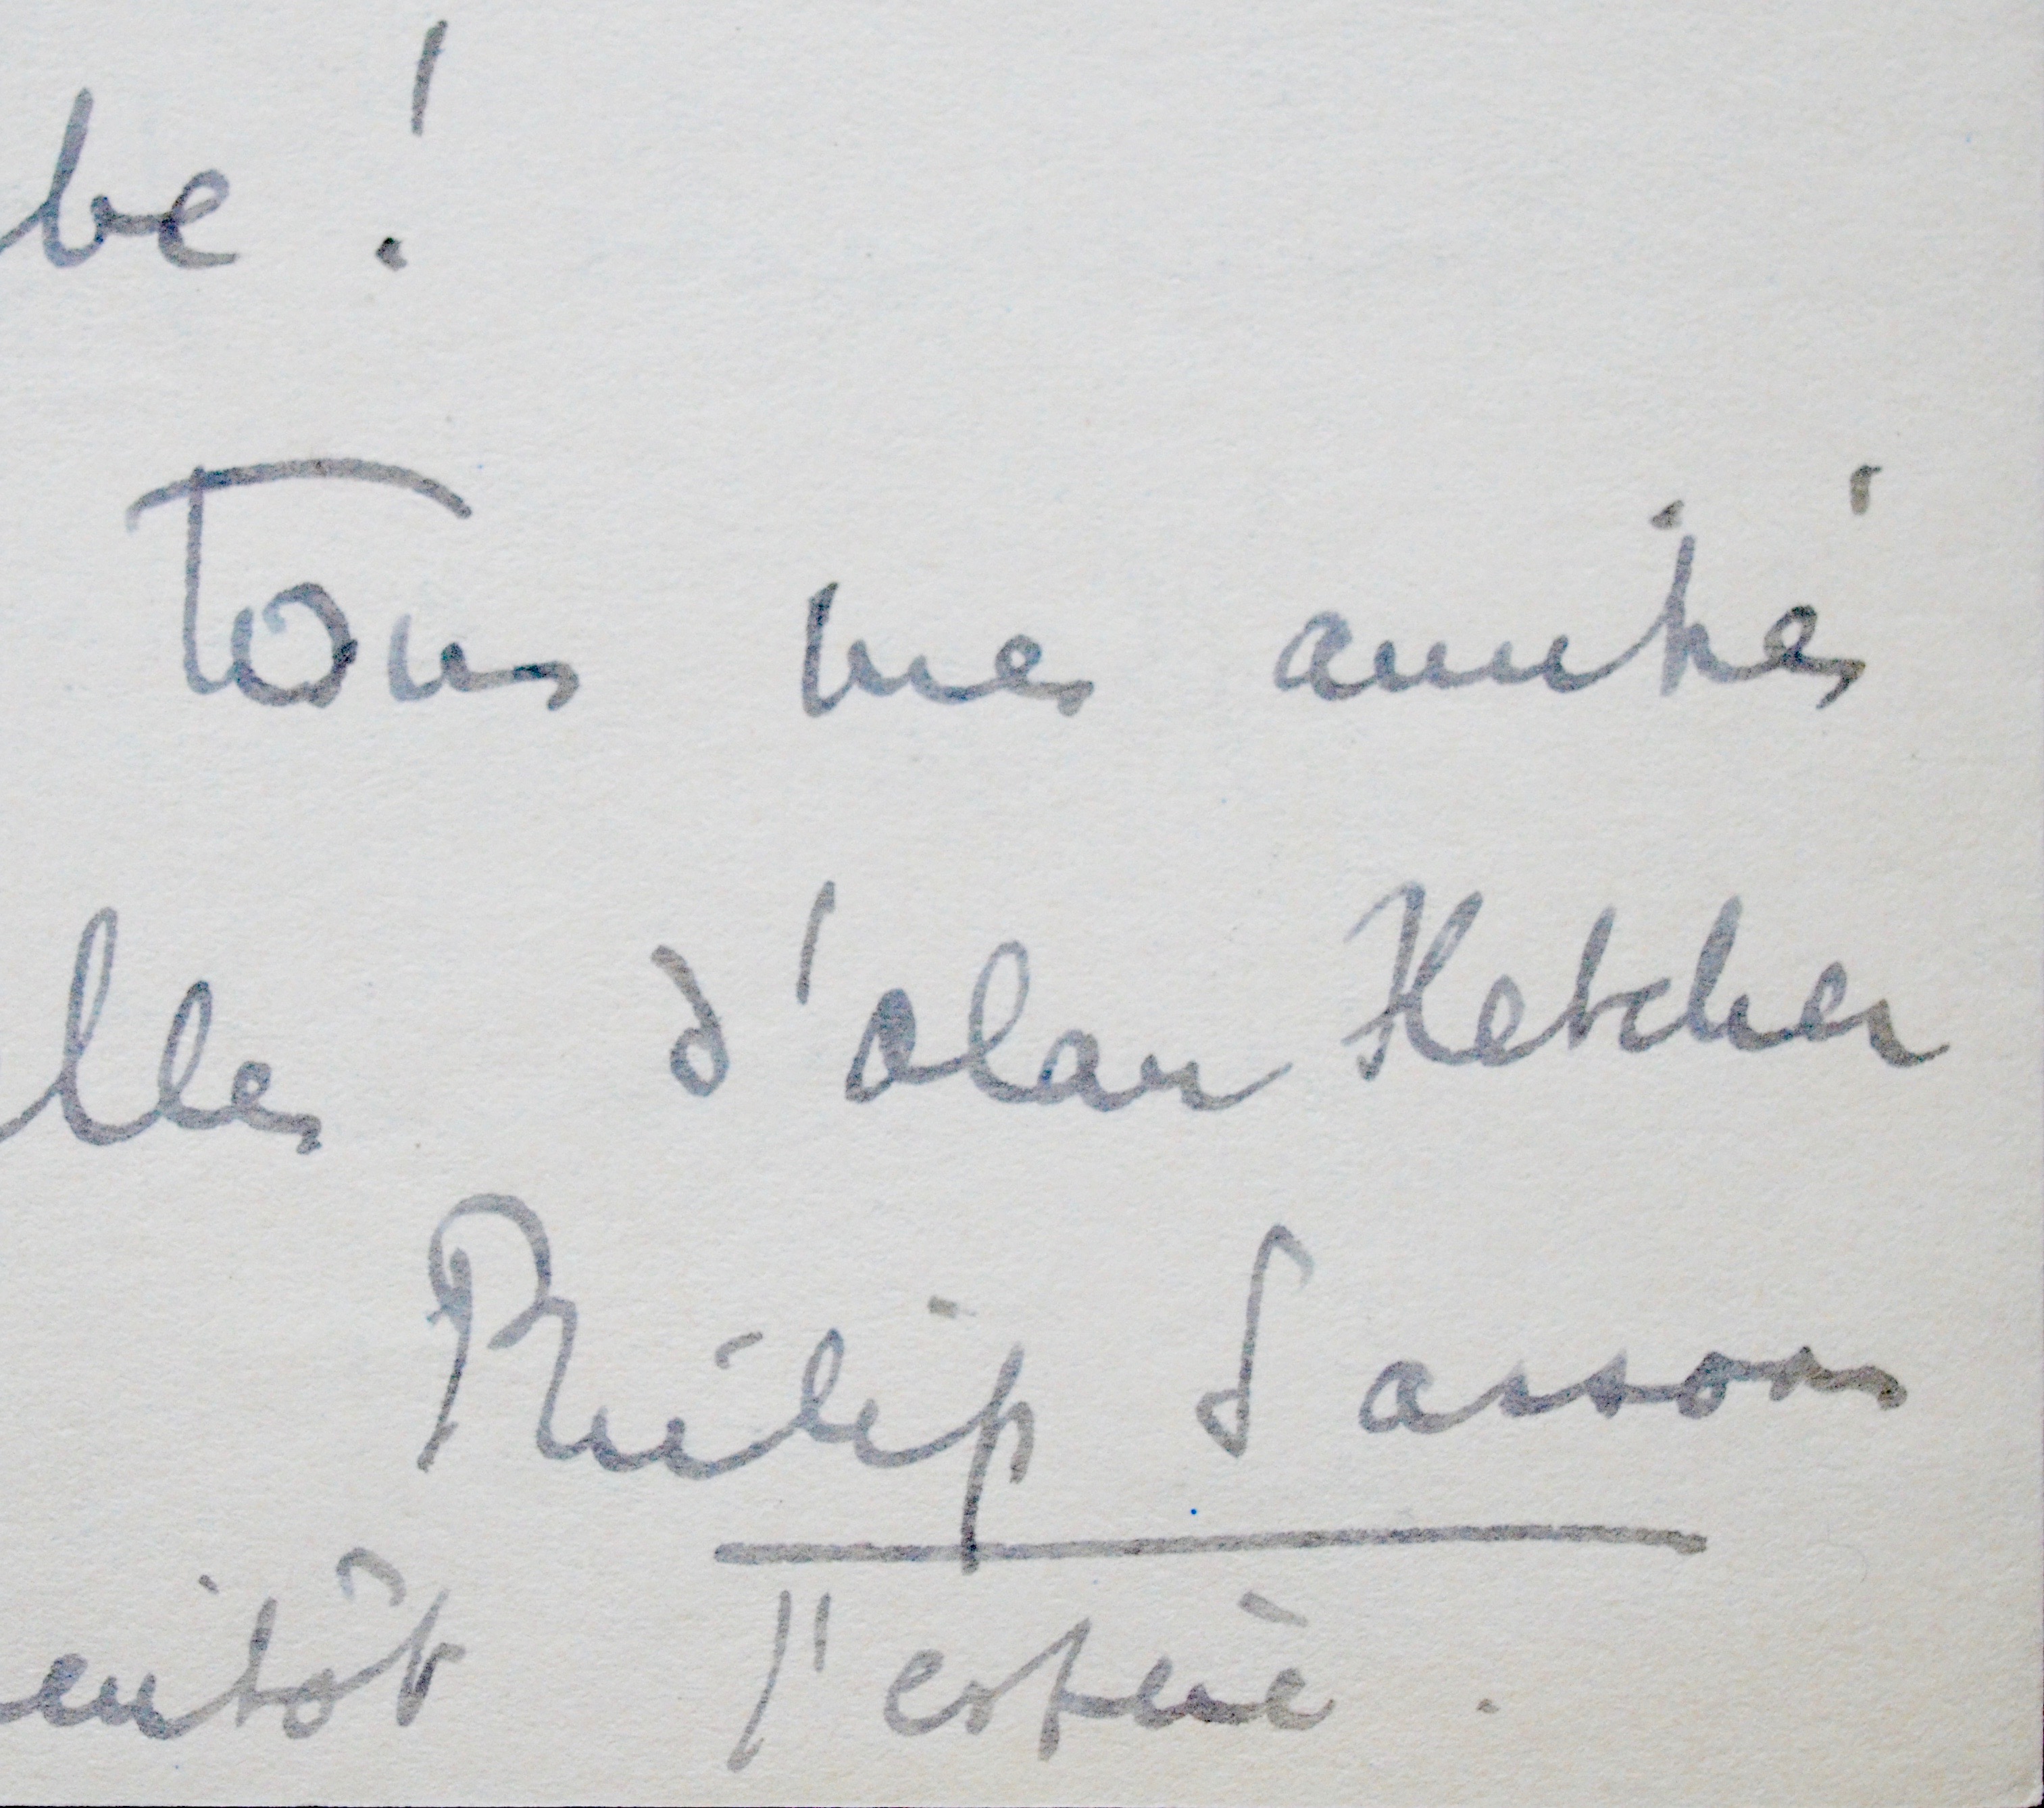 be !
Tous mes amitiés
lles d'Alan Fletcher
Philip Sassoon
entôt j'espère .